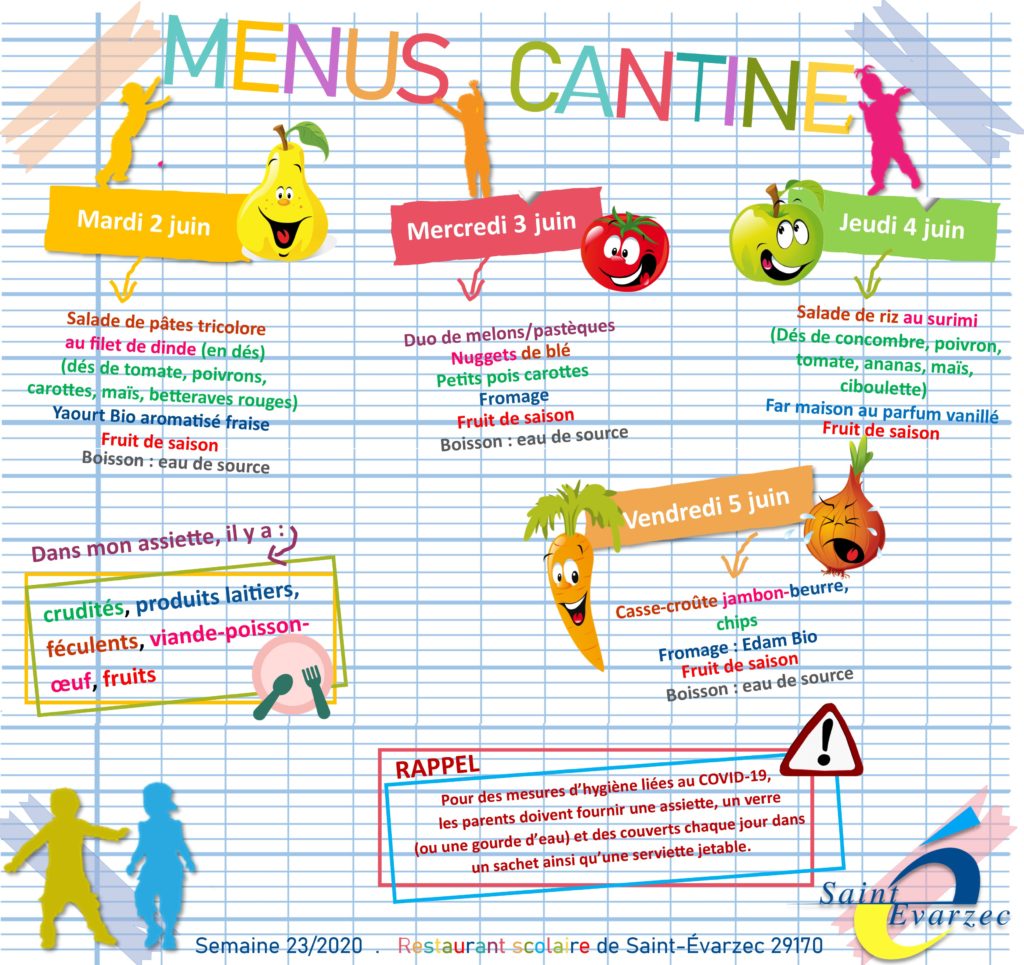 MENUS CANTINE
Mardi 2 juin
Salade de pâtes tricolore
au filet de dinde (en dés)
(dés de tomate, poivrons,
carottes, maïs, betteraves rouges)
Yaourt Bio aromatisé fraise
Fruit de saison
Boisson : eau de source
Mercredi 3 juin
Duo de melons/pastèques
Nuggets de blé
Petits pois carottes
Fromage
Fruit de saison
Boisson : eau de source
Jeudi 4 juin
Salade de riz au surimi
(Dés de concombre, poivron,
tomate, ananas, maïs,
ciboulette)
Far maison au parfum vanillé
Fruit de saison
Vendredi 5 juin
Casse-croûte jambon-beurre,
chips
Fromage : Edam Bio
Fruit de saison
Boisson : eau de source
Dans mon assiette, il y a :
crudités, produits laitiers,
féculents, viande-poisson-
œuf, fruits
RAPPEL
Pour des mesures d’hygiène liées au COVID-19,
les parents doivent fournir une assiette, un verre
(ou une gourde d’eau) et des couverts chaque jour dans
un sachet ainsi qu’une serviette jetable.
Saint
Evarzec
Semaine 23/2020 . Restaurant scolaire de Saint-Évarzec 29170